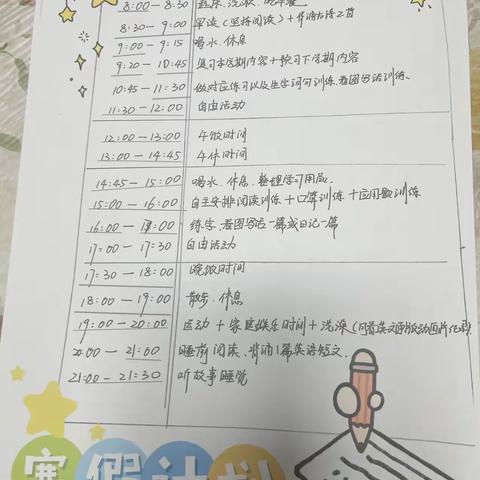 8:00 — 8:30 起床、洗漱、吃早餐
8:30 — 9:00 早读(坚持阅读)+背诵古诗2首
9:00 — 9:15 喝水、休息
9:20 — 10:45 复习本学期内容+预习下学期内容
10:45 — 11:30 做对应练习以及生字词句训练、看图写话训练、
11:30 — 12:00 自由活动
12:00 — 13:00 午饭时间
13:00 — 14:45 午休时间
14:45 — 15:00 喝水、休息、整理学习用品。
15:00 — 16:00 自主安排阅读训练+口算训练+应用题训练
16:00 — 17:00 练字、看图写话一篇或日记一篇
17:00 — 17:30 自由活动
17:30 — 18:00 晚饭时间
18:00 — 19:00 散步、休息
19:00 — 20:00 运动+家庭娱乐时间+洗澡(可看英文原版动画片
20:00 — 21:00 睡前阅读、背诵1篇英语短文.
21:00 — 21:30 听故事睡觉
寒假计划